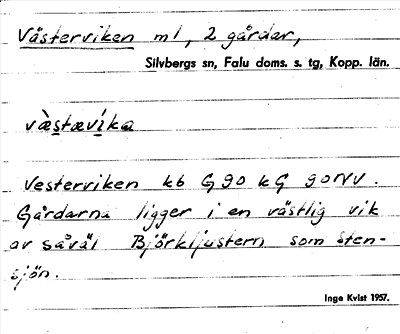 Västerviken ml, 2 gårdar,
Silvbergs sn, Falu doms. s. tg, Kopp. län.
væ̀stævíka
Vesterviken kb G 90 kG 90 NV.
Gårdarna ligger i en västlig vik
av såväl Björkljustern som Sten-
sjön.
Inge Kvist 1957.